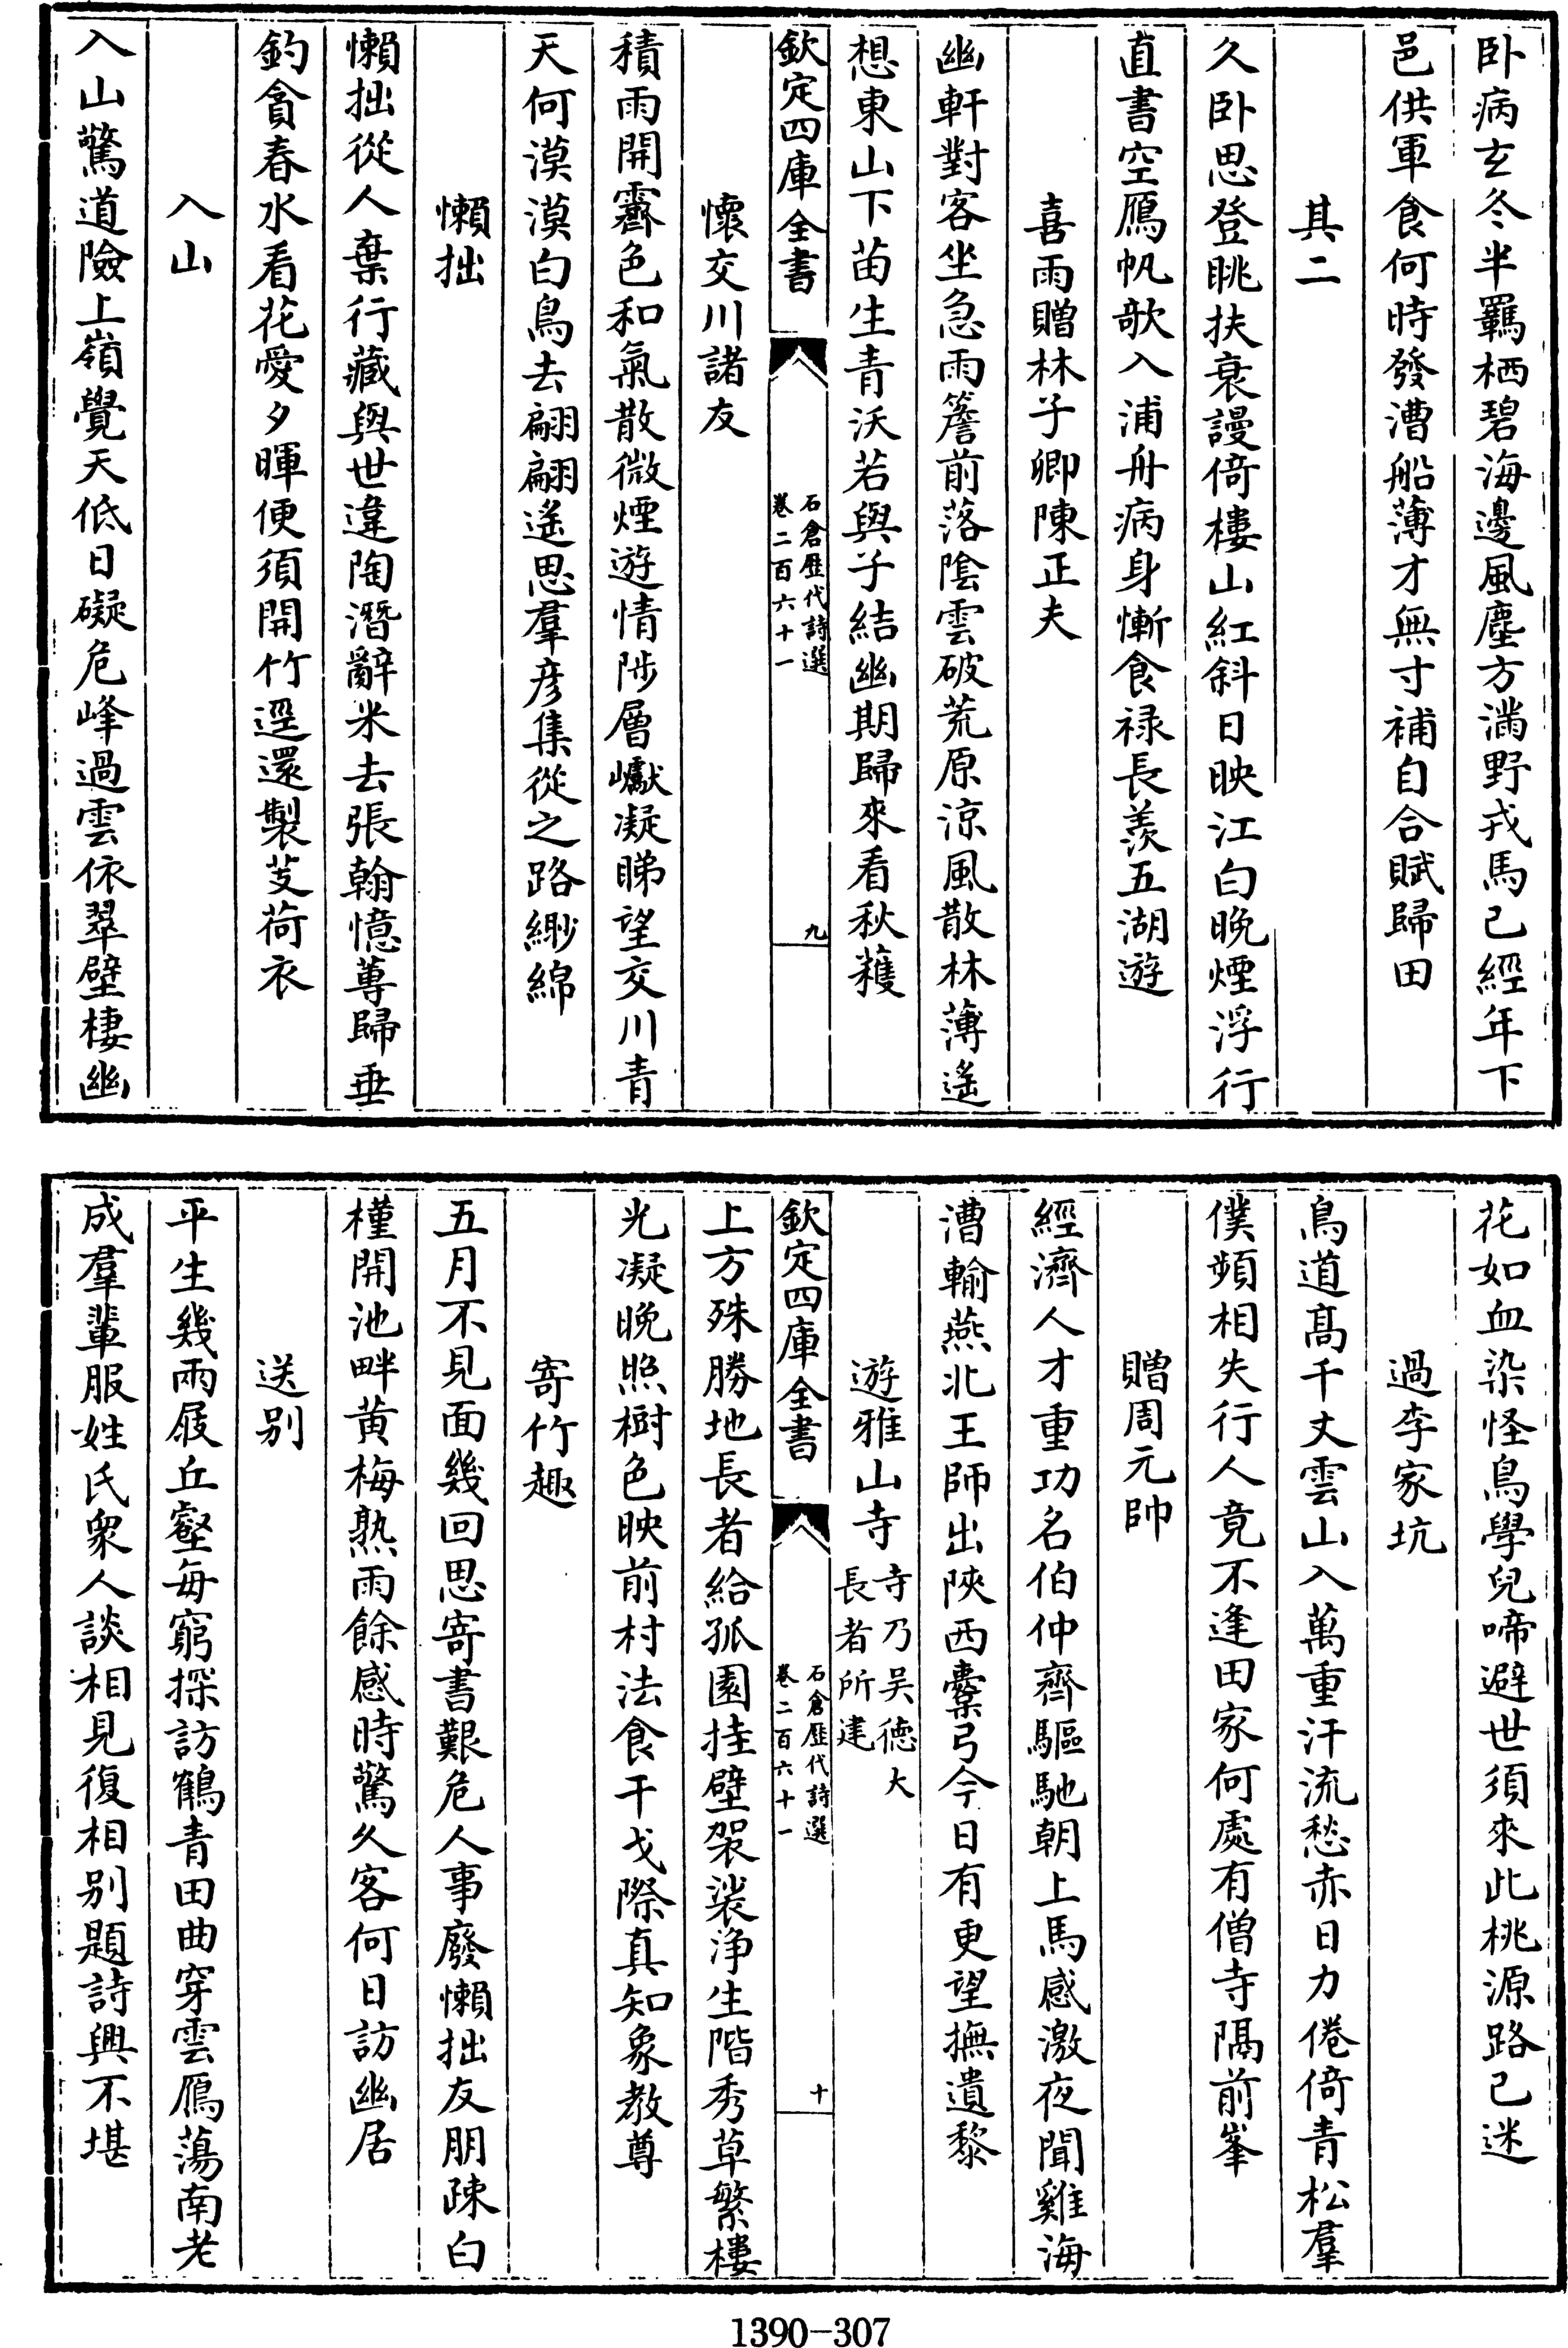 卧病玄冬半羈栖碧海邊風塵方滿野戎馬已經年下
邑供軍食何時發漕船薄才無寸補自合賦歸田
其二
久卧思登眺扶衰謾倚樓山紅斜日映江白晚煙浮行
直書空鴈帆歌入浦舟病身慚食禄長羨五湖遊
喜雨贈林子卿陳正夫
幽軒對客坐急雨簷前落陰雲破荒原涼風散林薄遙
想東山下苗生青沃若與子結幽期歸來看秋穫
欽定四庫全書
石倉歷代詩選
卷二百六十一
九
懷交川諸友
積雨開霽色和氣散微煙遊情陟層巘凝睇望交川青
天何漠漠白鳥去翩翩遙思羣彦集從之路緬綿
懶拙
懶拙從人棄行藏與世違陶潛辭米去張翰憶蓴歸垂
釣貪春水看花愛夕暉便須開竹逕還製芰荷衣
入山
入山驚道險上嶺覺天低日礙危峰過雲依翠壁棲幽
花如血染怪鳥學兒啼避世須來此桃源路已迷
過李家坑
鳥道髙千丈雲山入萬重汗流愁赤日力倦倚青松羣
僕頻相失行人竟不逢田家何處有僧寺隔前峯
贈周元帥
經濟人才重功名伯仲齊驅馳朝上馬感激夜聞雞海
漕輸燕北王師出陜西櫜弓今日有更望撫遺黎
遊雅山寺
寺乃吴德大
長者所建
欽定四庫全書
石倉歷代詩選
卷二百六十一
十
上方殊勝地長者給孤園挂壁袈裟浄生階秀草繁樓
光凝晚照樹色映前村法食干戈際真知象教尊
寄竹趣
五月不見面幾回思寄書艱危人事廢懶拙友朋疎白
槿開池畔黄梅熟雨餘感時驚久客何日訪幽居
送别
平生幾兩屐丘壑每窮探訪鶴青田曲穿雲鴈蕩南老
成羣輩服姓氏衆人談相見復相别題詩興不堪
1390-307